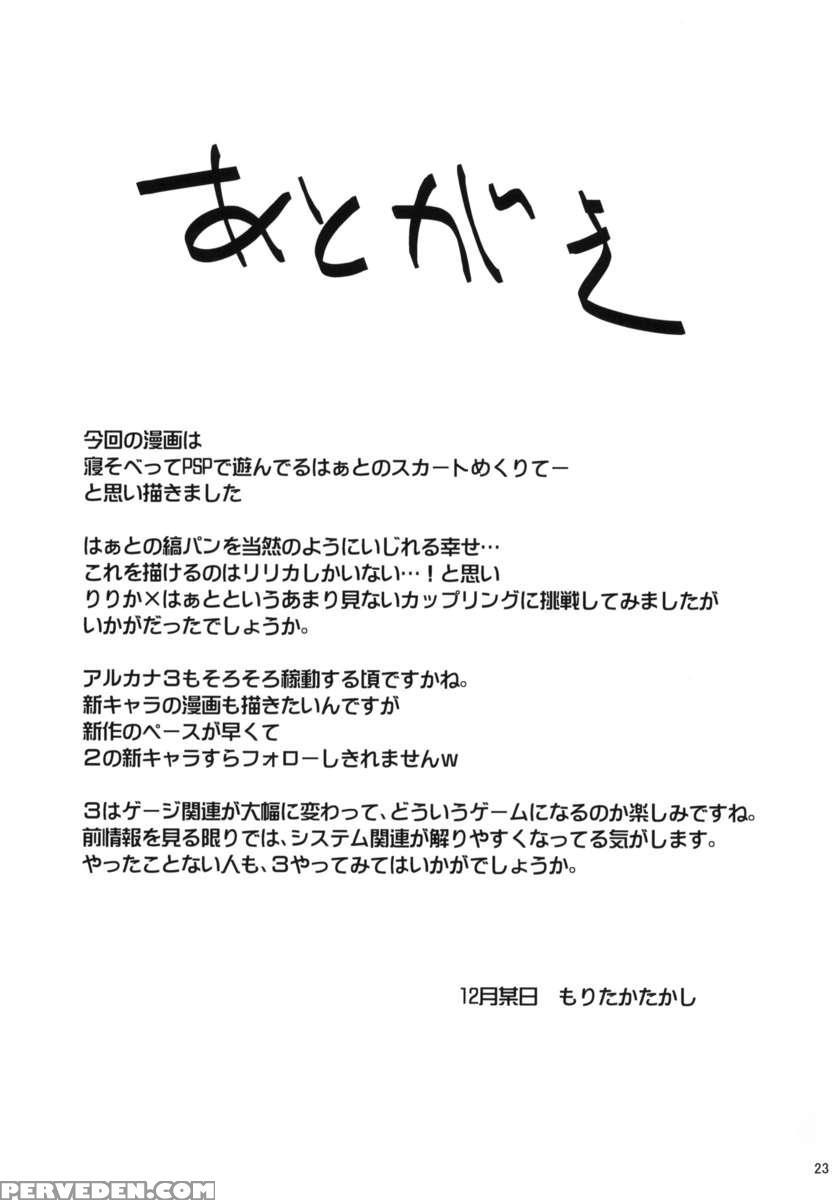 あとがき
今回の漫画は
寝そべってPSPで遊んでるはぁとのスカートめくりてー
と思い描きました
はぁとの縞パンを当然のようにいじれる幸せ…
これを描けるのはリリカしかいない…！と思い
りりか×はぁとというあまり見ないカップリングに挑戦してみましたが
いかがだったでしょうか。
アルカナ３もそろそろ稼動する頃ですかね。
新キャラの漫画も描きたいんですが
新作のペースが早くて
２の新キャラすらフォローしきれませんｗ
３はゲージ関連が大幅に変わって、どういうゲームになるのか楽しみですね。
前情報を見る限りでは、システム関連が解りやすくなってる気がします。
やったことない人も、３やってみてはいかがでしょうか。
12月某日　もりたかたかし
23
PERVEDEN.COM